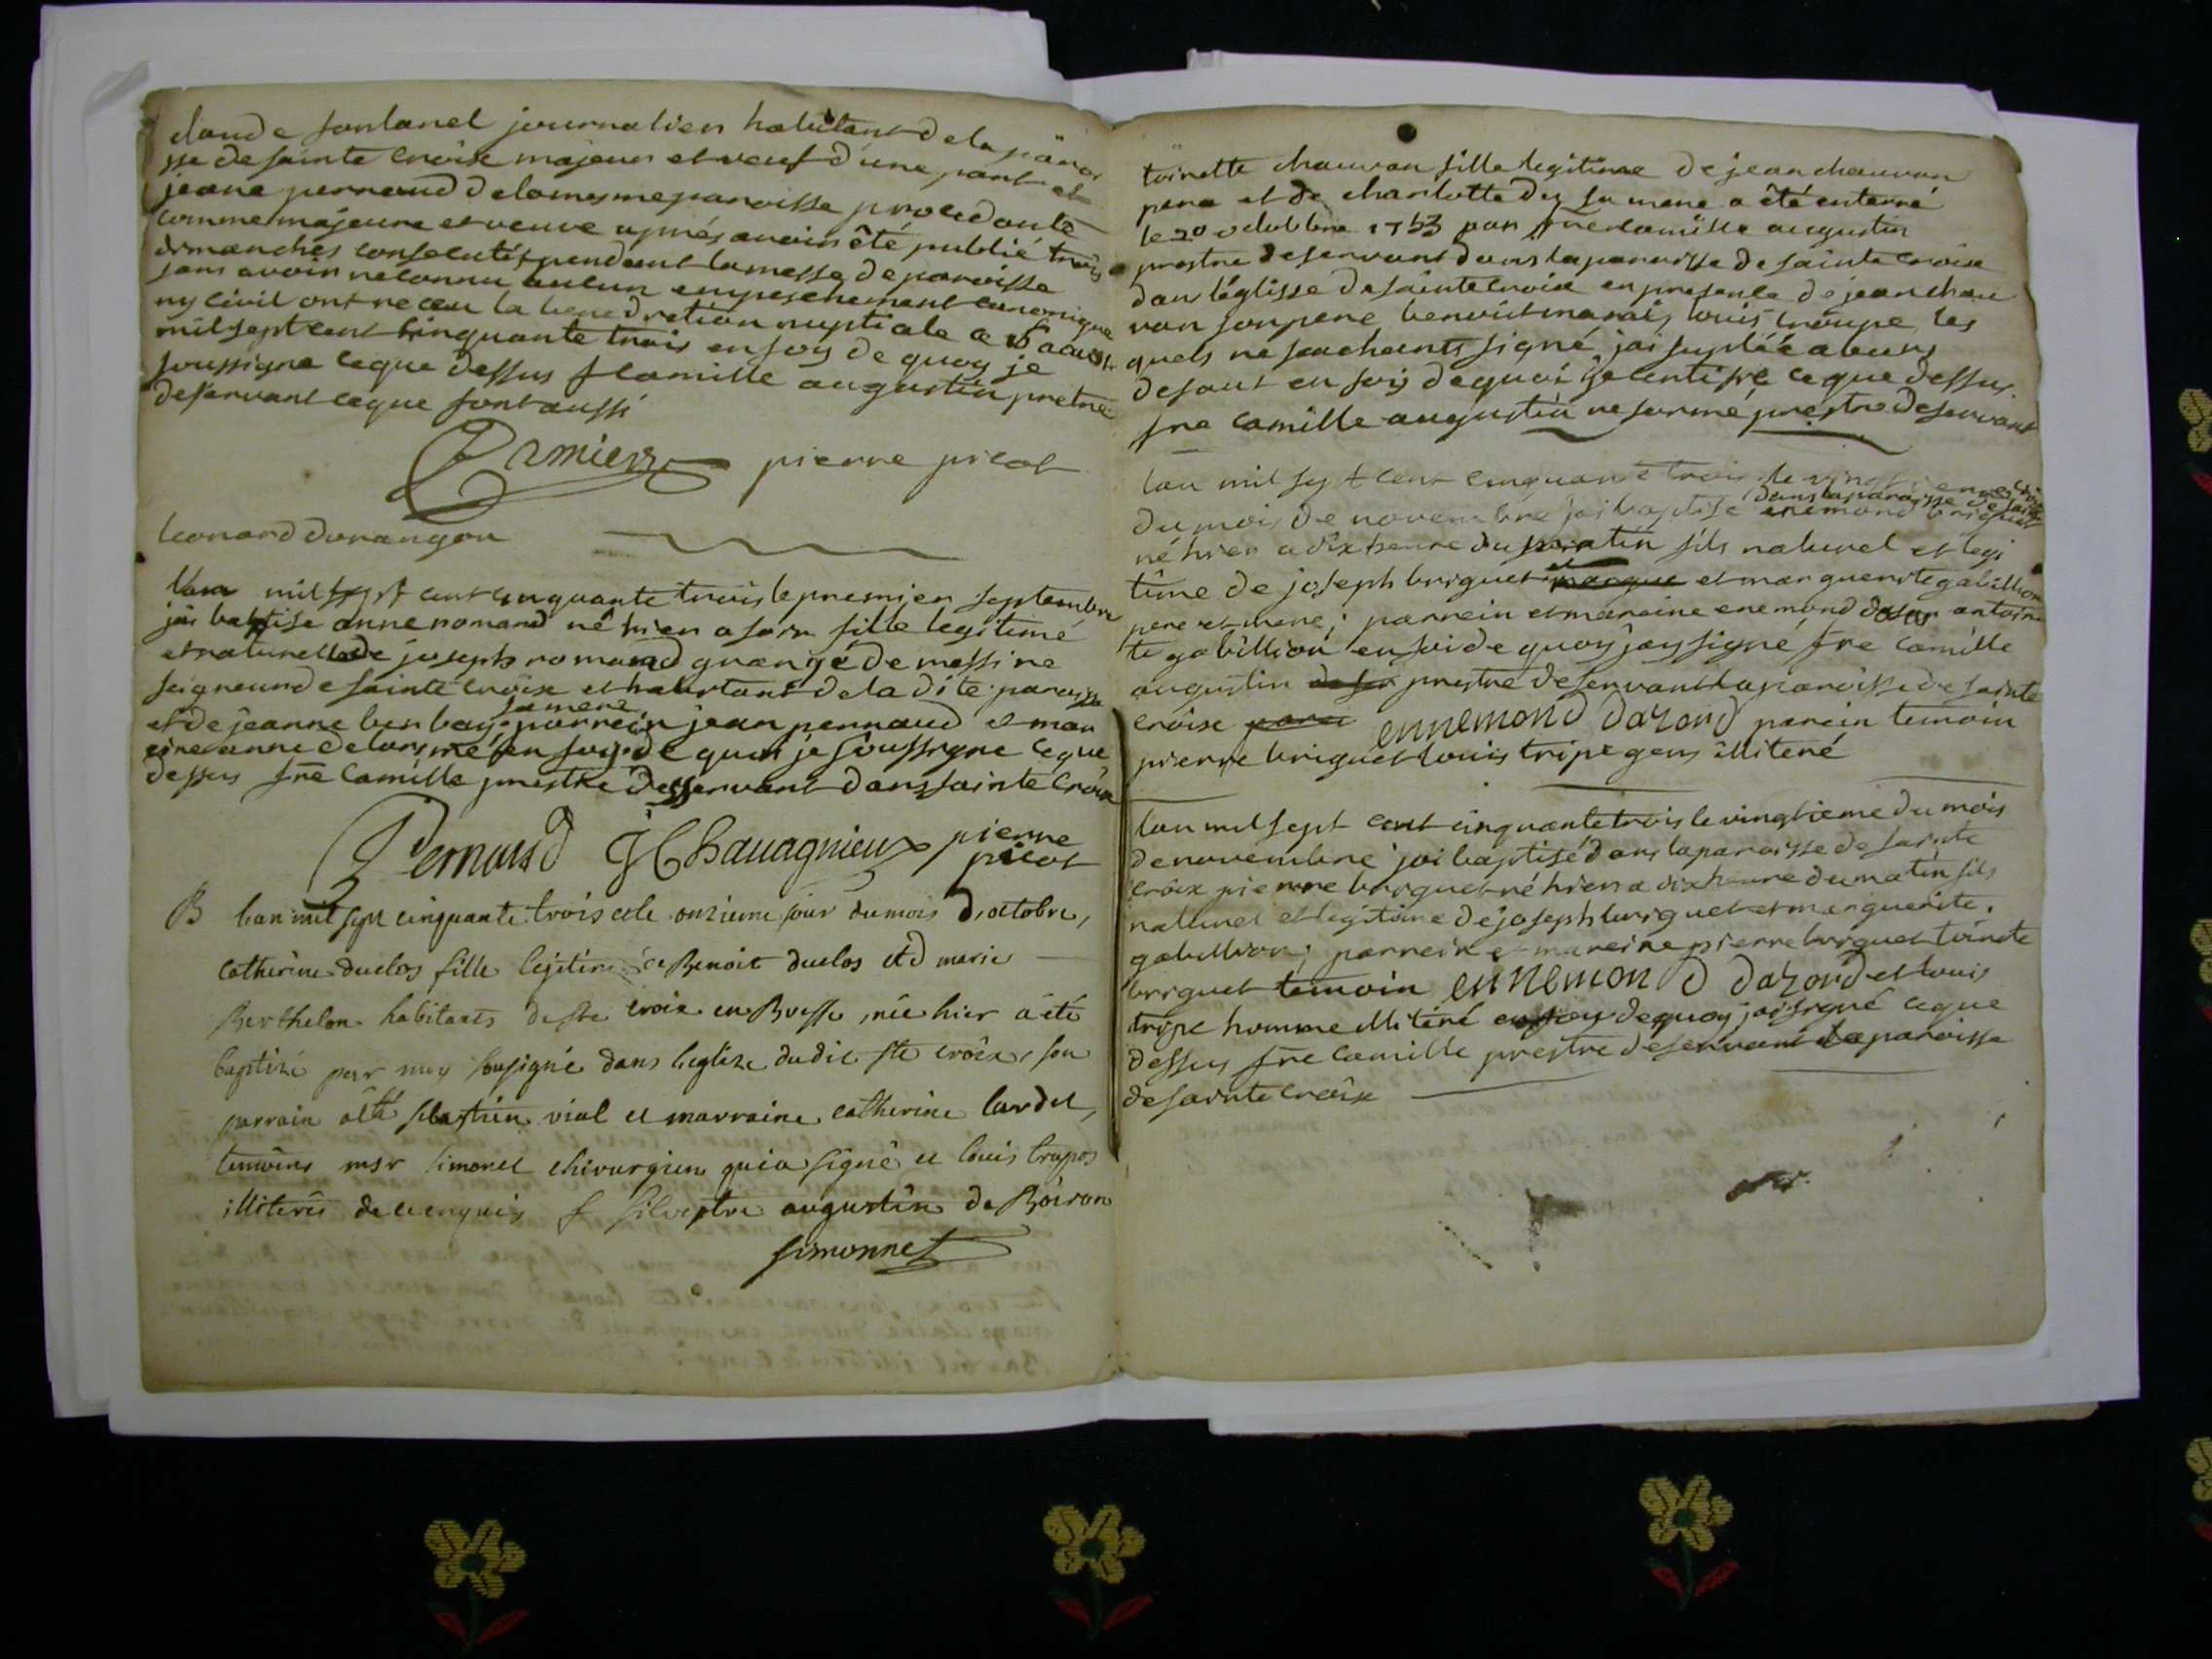 claude fontanel journalier habitant de la paroi
sse de sainte croise majeur et veuf d'une part et
jeane perraud de la mesme paroisse procedante
comme majeure et veuve aprés avoir été publié trois
dimanches consecutifs pendant la messe de paroisse
sans avoir reconnu aucun empeschement canonique
ny civil ont receu la benediction nuptiale ce aoust
mil sept cent cinquante trois en foy de quoy je
soussigne ce que dessus f camille augustin pretre
deservant ce que font aussi
pierre picot
leonard durangon
lan mil sept cent cinquante trois le premier septembre
jai baptise anne romand né hier a soir fille legitime
et naturelle de joseph romand grangé de messire
seigneur de sainte croise et habitant de la dite paroisse
sa mere
et de jeanne parrein jean perraud et mar
eine anne en foy de quoi je soussigne ce que
dessus fre camille prestre desservant dans sainte croise
Pernaud JC Chavagnieux pierre
picot
B lan mil sept cinquante trois et le onzieme jour du mois d'octobre,
catherine duclos fille lejitime de Benoit duclos et d marie
Berthelon habitants de ste croix en Bresse, née hier a été
baptizé par moy sousigné dans leglize dudit ste croix, son
parrain a été sebastien vial et marraine catherine lardet,
temoins msr simonet chirurgien qui a signé et louis trapos
illiterés de ce enquis f silvestre augustin de Boiron
simonnet
toinette chauvan fille legitime de jean chauvan
pere et de charlotte dey sa mere a été enterré
le 20 octobbre 1753 par frere camille augustin
prestre deservant dans la paroisse de sainte croise
dan léglisse de sainte croise en presence de jean chau
van son pere benoist marais louis troupe les
quels ne sachants signé jai suplée a leurs
defaut en foy de quoi je certifie ce que dessus
fre camille augustin reformé prestre deservant
lan mil sept cent cinquante trois le vingtieme
dans la paroisse de sainte croix
du mois de novembre jai baptise enemond briquet
né hier a dix heure du matin fils naturel et legi
time de joseph briquet et marguerite gabillion
pere et mere; parrein et mareine enemond dasor antoine
te gabillion en foi de quoy jay signé fre camille
augustin prestre deservant la paroisse de sainte
croise ennemond dazord parein temoin
pierre briquet louis tripe gens illiteré
lan mil sept cent cinquante trois le vingtieme du mois
de novembre jai baptisé dans la paroisse de sainte
croix pierre briquet né hier a dix heure du matin fils
naturel et legitime de joseph briquet et marguerite
gabillion; parrein et mareine pierre briquet toinete
briquet temoin ennemond dazord et louis
tripe homme illiteré en foy de quoy jai signé ce que
dessus fre camille prestre deservant la paroisse
de sainte croix